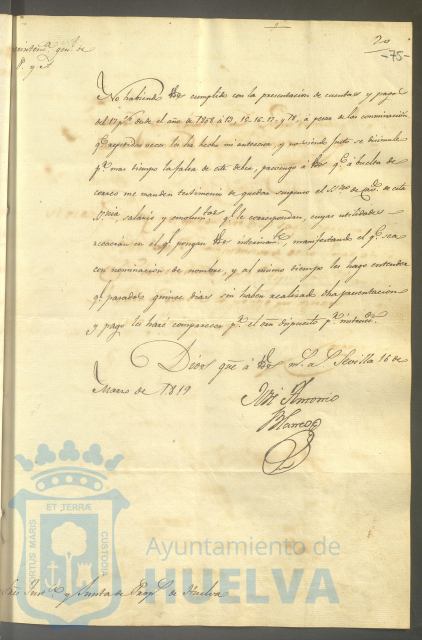 20
-75-
No habiendo cumplido con la presentacion de cuentas y pago
del 17 p% desde el año de 1808 á 13, 15-16-17- y 18, á pesar de las conminaciones
q.e repetidas veces les ha hecho mi antecesor, y no siendo justo se disimule
p.r mas tiempo la falta de este deber, prevengo á q.e á buelta de
correo me manden testimonio de quedar suspenso el de esta
salario y emolum.tos q.e le correspondan, cuyas utilidades
recaerán en el q.e pongan interinam.te, manifestando el q.e sea
con nominacion de nombre, y al mismo tiempo les hago entender
q.e pasados quince dias sin haber realizado dha presentacion
y pago les haré comparecer p.r el
Dios gue á m.s a.s Sevilla 16 de
Marzo de 1819
José Antonio
Blanco
ET TERRÆ
PORTUS MARIS
CUSTODIA
Ayuntamiento de
HUELVA
y Junta de Prop.s de Huelva